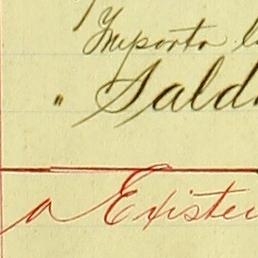 Importa l
" Sald
a Existen